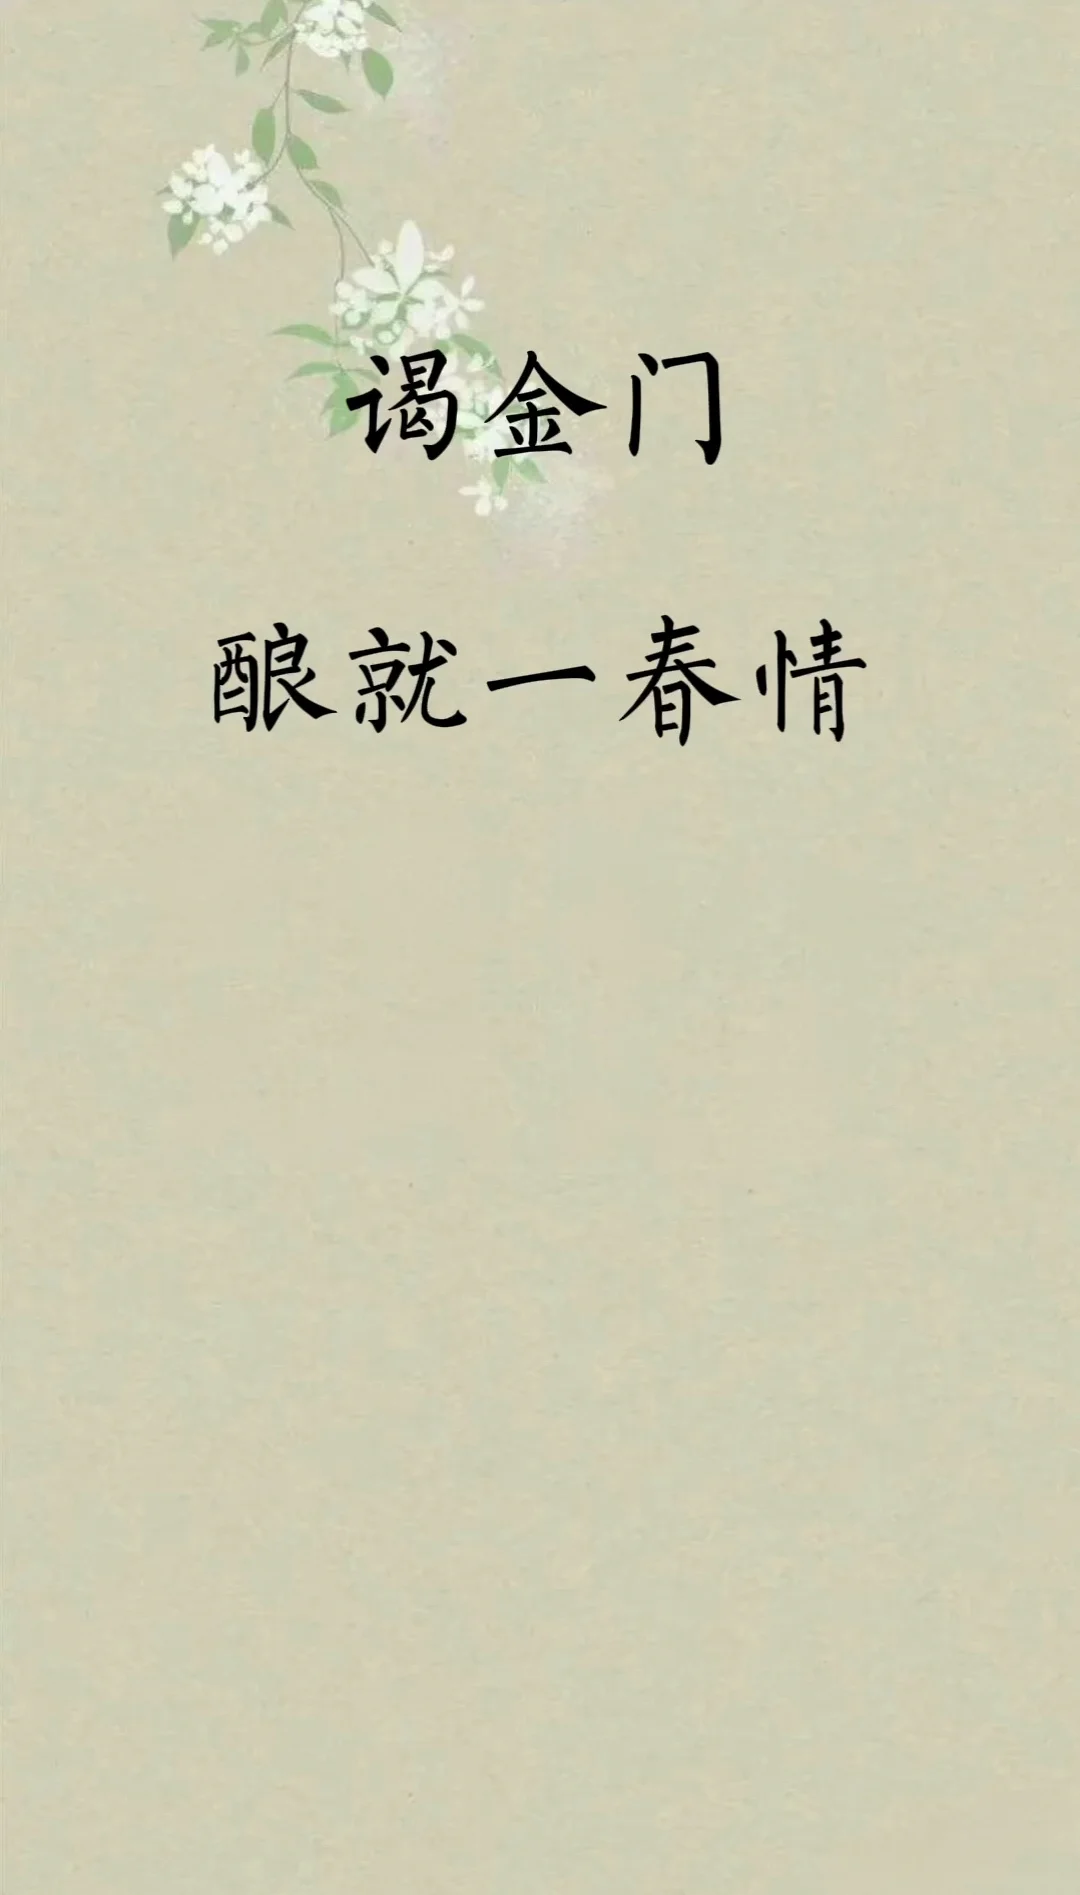 谒金门
酿就一春情